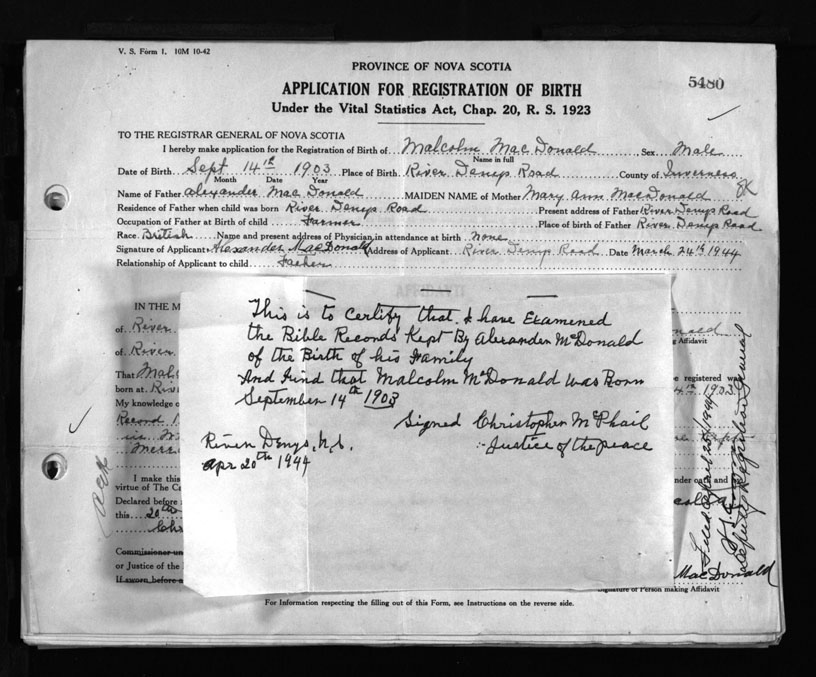 V. S. Form 1. 10M 10-42
PROVINCE OF NOVA SCOTIA
5480
APPLICATION FOR REGISTRATION OF BIRTH
Under the Vital Statistics Act, Chap. 20, R. S. 1923
TO THE REGISTRAR GENERAL OF NOVA SCOTIA
I hereby make application for the Registration of Birth of Malcolm MacDonald Sex Male
Name in full
Date of Birth Sept 14th 1903 Place of Birth River Denys Road County of Inverness
Month Date Year
Name of Father Alexander MacDonald MAIDEN NAME of Mother Mary Ann MacDonald
Residence of Father when child was born River Denys Road Present address of Father River Denys Road
Occupation of Father at Birth of child Farmer Place of birth of Father River Denys Road
Race British Name and present address of Physician in attendance at birth none
Signature of Applicant Alexander MacDonald Address of Applicant River Denys Road Date March 24th 1944
Relationship of Applicant to child Father
IN THE M
of River
of River
That Mal
born at Riv
My knowledge o
Record
I make this
virtue of The Ca
Declared before
this 20th
Chr
Commissioner un
or Justice of the
If sworn before a
This is to Certify that I have Examined
the Bible Records Kept By Alexander McDonald
of the Birth of his Family
And Find that Malcolm McDonald was Born
September 14th 1903
Signed Christopher McPhail
Justice of the peace
River Denys, N.S.
Apr 20th 1944
nald
g Affidavit
be registered was
4th 1903
nder oath and
MacDonald
Signature of Person making Affidavit
Filed April 25/1944
Deputy Registrar General
For Information respecting the filling out of this Form, see Instructions on the reverse side.